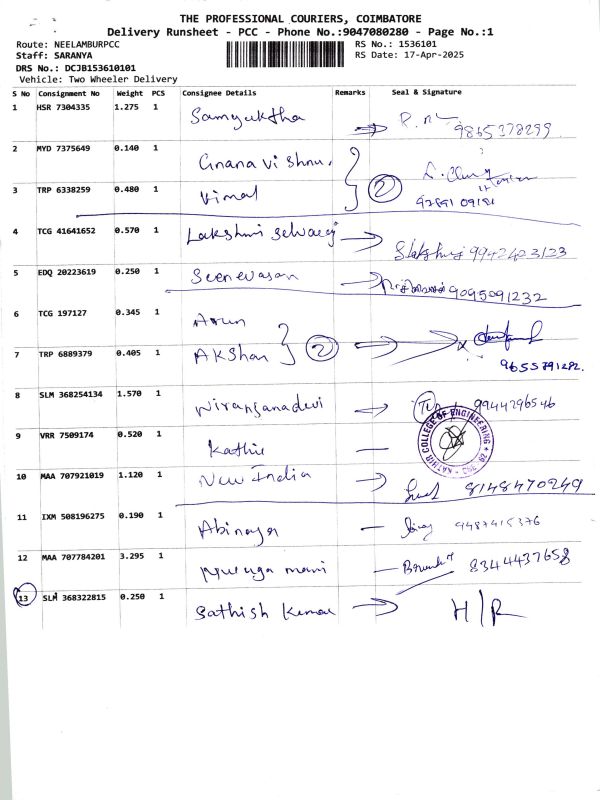 THE PROFESSIONAL COURIERS, COIMBATORE
Delivery Runsheet - PCC - Phone No.:9047080280 - Page No.:1
Route: NEELAMBURPCC
RS No.: 1536101
Staff: SARANYA
RS Date: 17-Apr-2025
DRS No.: DCJB153610101
Vehicle: Two Wheeler Delivery
S No Consignment No Weight PCS Consignee Details Remarks Seal & Signature
1 HSR 7304335 1.275 1 Samyuktha 9865378299
2 MYD 7375649 0.140 1 Gnana vishnu.
3 TRP 6338259 0.480 1 Vimal 2
4 TCG 41641652 0.570 1 Lakshmi selvaraj 9942423123
5 EDQ 20223619 0.250 1 Seenevasan 9095091232
6 TCG 197127 0.345 1 Arun
7 TRP 6889379 0.405 1 AKshan 2 9655791282.
8 SLM 368254134 1.570 1 Niranjanadevi 9944296546
9 VRR 7509174 0.520 1 Kathir KATHIR COLLEGE OF ENGINEERING
10 MAA 707921019 1.120 1 New India 8148470249
11 IXM 508196275 0.190 1 Abinaya 9487415376
12 MAA 707784201 3.295 1 Muruga mani 8344437658
13 SLM 368322815 0.250 1 Sathish Kumar H/R